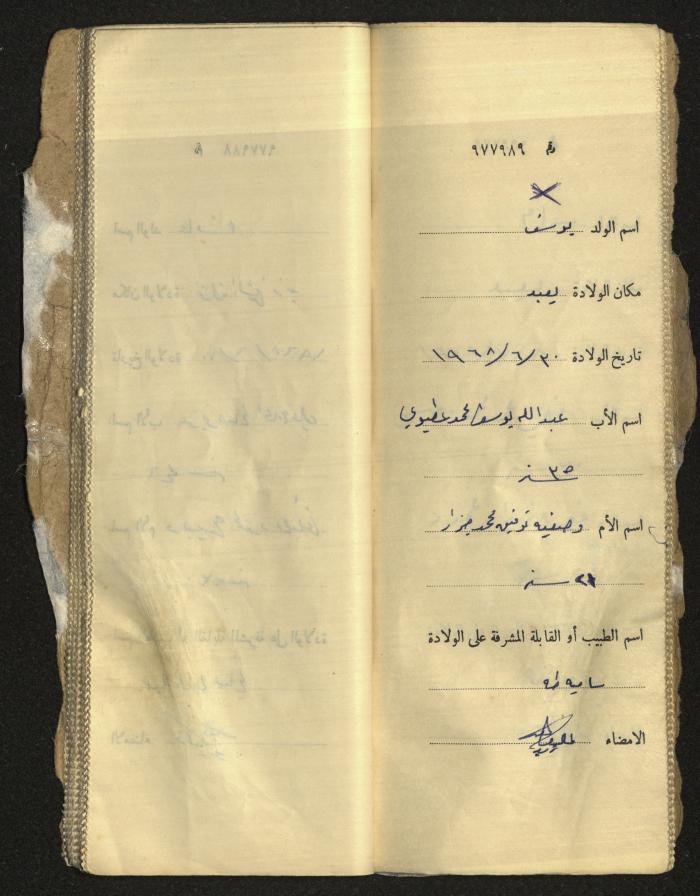 رقم ٩٧٧٩٨٩
اسم الولد يوسف
مكان الولادة يعبد
تاريخ الولادة ٣٠/٦/١٩٦٨
اسم الأب عبدالله يوسف محمد عطيوي
٣٥ سنة
اسم الأم وصفيه توفيق محمد جرار
سنة
اسم الطبيب أو القابلة المشرفة على الولادة
ساميه طه
الامضاء